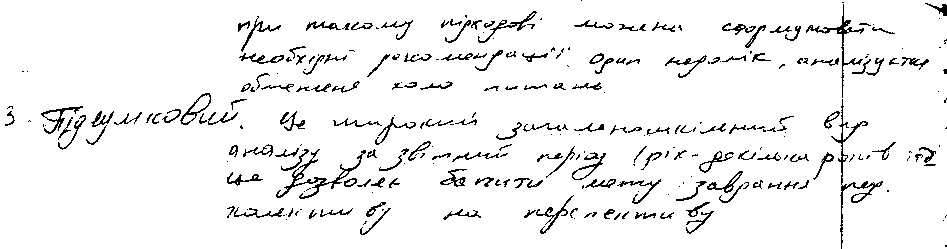 при такому підході можна сформулювати
необхідні рекомендації. один недолік, аналізується
обмежене коло питань
3. Підсумковий. Це широкий загальношкільний вид
аналізу за звітний період (рік - декілька років і т.д
це дозволяє бачити мету завдання пед.
колективу на перспективу